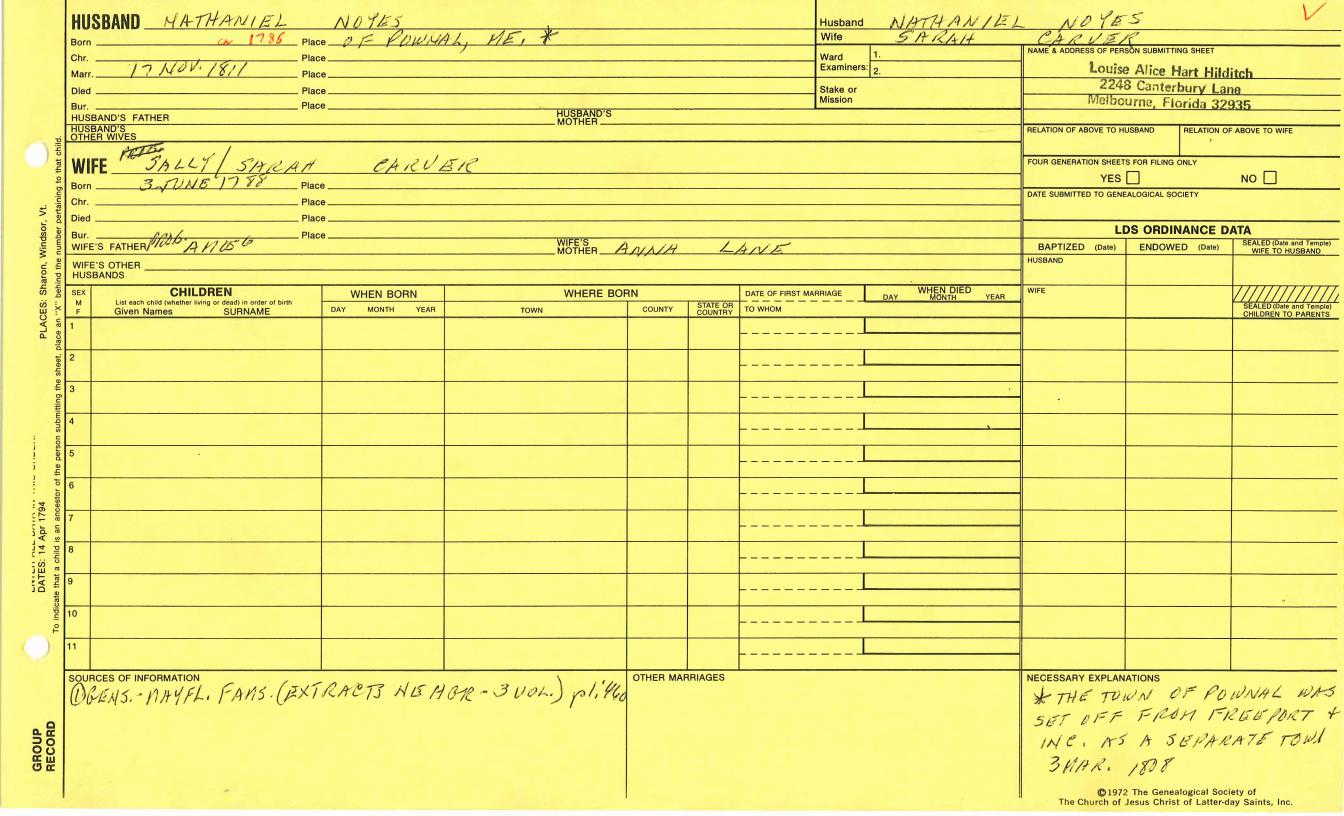 HUSBAND NATHANIEL NOYES
Born ca 1785 Place OF POWNAL, ME. *
Chr. Place
Marr. 17 NOV. 1811 Place
Died Place
Bur. Place
HUSBAND'S FATHER HUSBAND'S MOTHER
HUSBAND'S OTHER WIVES
WIFE SALLY/SARAH CARVER
Born 3 JUNE 1788 Place
Chr. Place
Died Place
Bur. Place
WIFE'S FATHER prob. AMOS WIFE'S MOTHER ANNA LANE
WIFE'S OTHER HUSBANDS
Husband NATHANIEL NOYES
Wife SARAH CARVER
Ward Examiners: 1.
2.
Stake or Mission
NAME & ADDRESS OF PERSON SUBMITTING SHEET
Louise Alice Hart Hilditch
2248 Canterbury Lane
Melbourne, Florida 32935
RELATION OF ABOVE TO HUSBAND RELATION OF ABOVE TO WIFE
FOUR GENERATION SHEETS FOR FILING ONLY
YES NO
DATE SUBMITTED TO GENEALOGICAL SOCIETY
LDS ORDINANCE DATA
BAPTIZED (Date) ENDOWED (Date) SEALED (Date and Temple) WIFE TO HUSBAND
HUSBAND
WIFE
SEALED (Date and Temple) CHILDREN TO PARENTS
SEX M F
CHILDREN
List each child (whether living or dead) in order of birth
Given Names SURNAME
WHEN BORN
DAY MONTH YEAR
WHERE BORN
TOWN COUNTY STATE OR COUNTRY
DATE OF FIRST MARRIAGE
TO WHOM
WHEN DIED
DAY MONTH YEAR
1
2
3
4
5
6
7
8
9
10
11
SOURCES OF INFORMATION
① GENS.-MAYFL. FAMS. (EXTRACTS NEHGR - 3 VOL.) p1:460
OTHER MARRIAGES
NECESSARY EXPLANATIONS
* THE TOWN OF POWNAL WAS
SET OFF FROM FREEPORT +
INC. AS A SEPARATE TOWN
3 MAR. 1808
©1972 The Genealogical Society of
The Church of Jesus Christ of Latter-day Saints, Inc.
PLACES: Sharon, Windsor, Vt.
DATES: 14 Apr 1794
To indicate that a child is an ancestor of the person submitting the sheet, place an "X" behind the number pertaining to that child.
GROUP
RECORD